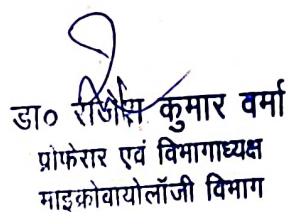 डा० राजेश कुमार वर्मा
प्रोफेसर एवं विभागाध्यक्ष
माइक्रोवायोलॉजी विभाग